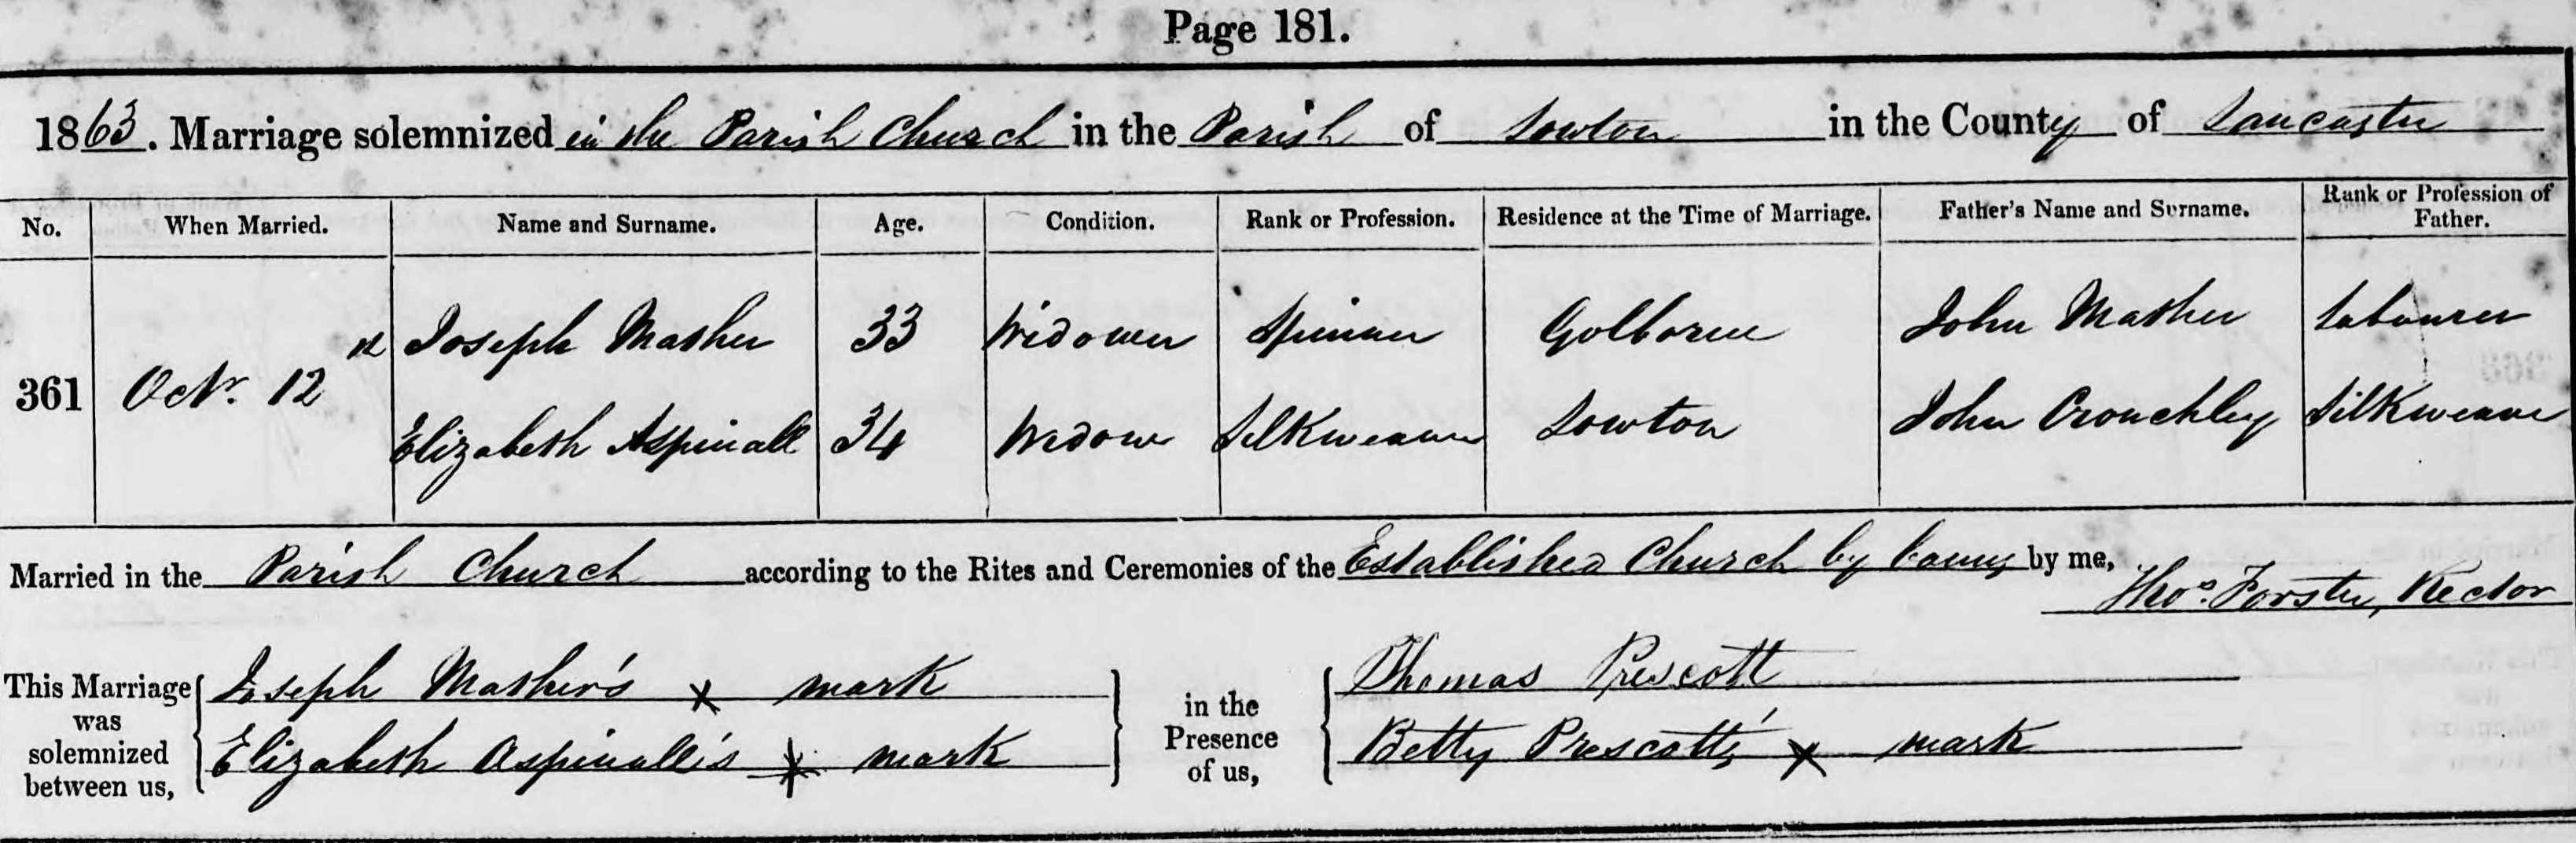 Page 181.
1863. Marriage solemnized in the Parish Church in the Parish of Lowton in the County of Lancaster
No. When Married. Name and Surname. Age. Condition. Rank or Profession. Residence at the Time of Marriage. Father's Name and Surname. Rank or Profession of Father.
Joseph Mather 33 Widower Spinner Golborne John Mather Labourer
361 Octr. 12
Elizabeth Aspinall 34 Widow Silkweaver Lowton John Crouchley Silkweaver
Married in the Parish Church according to the Rites and Ceremonies of the Established Church by banns by me,
Thos. Forster, Rector
This Marriage was solemnized between us,
Joseph Mather's x mark
Elizabeth Aspinall's x mark
in the Presence of us,
Thomas Prescott
Betty Prescott's x mark